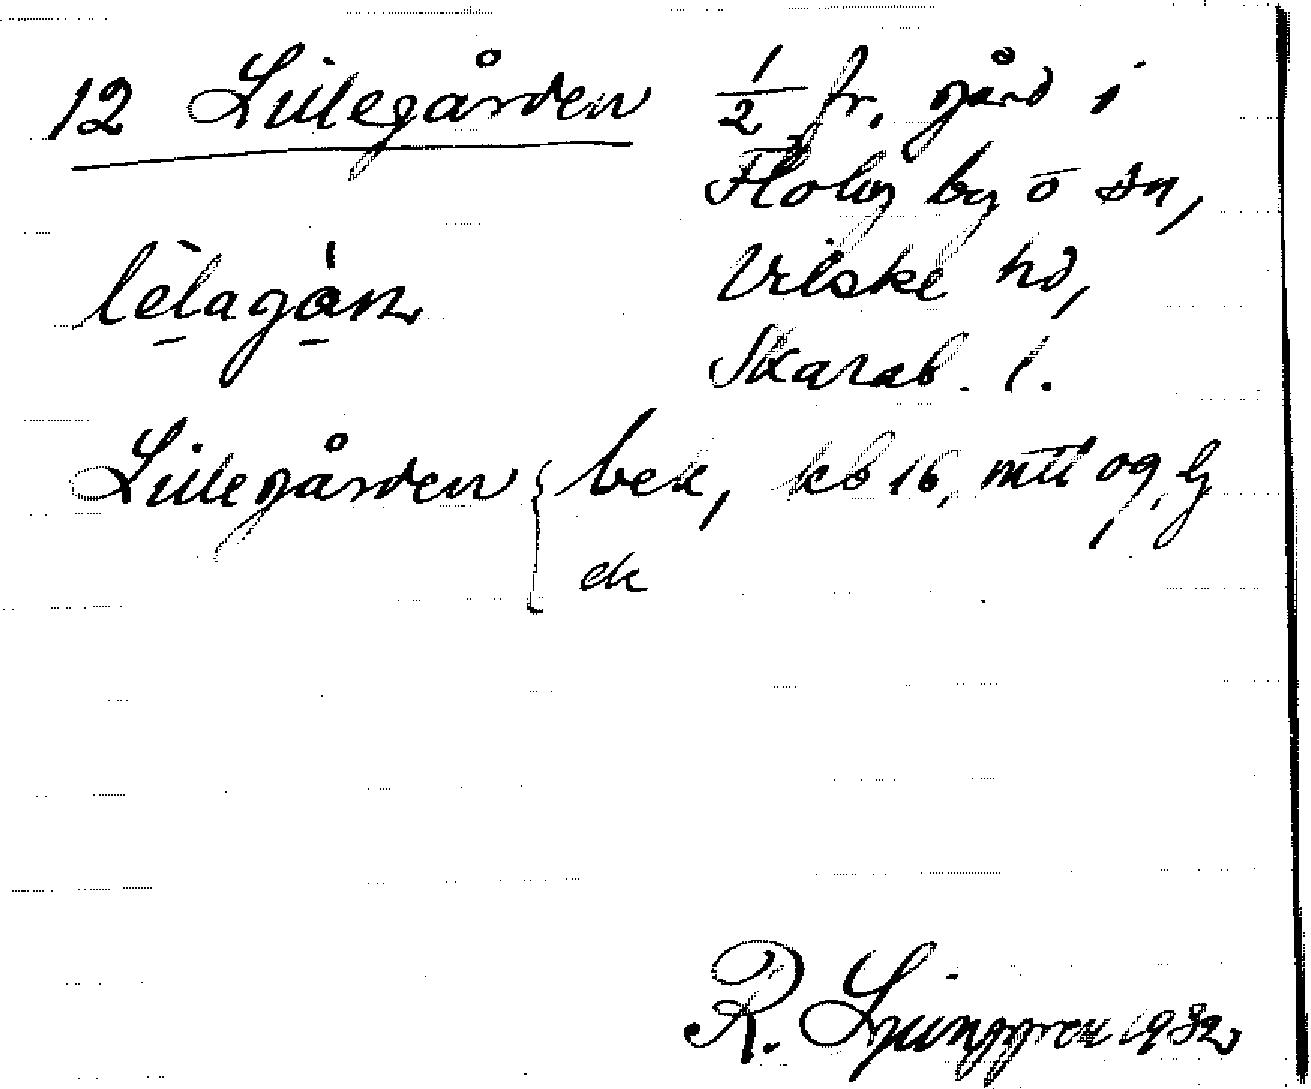 12 Lillegården 1/2 fr. gård i
Floby by o sn,
Vilske hd,
Skarab. l.
lèlagàɳ
Lillegården { bek, kb 16, mtl og, lj
ek
R. Ljunggren 1932